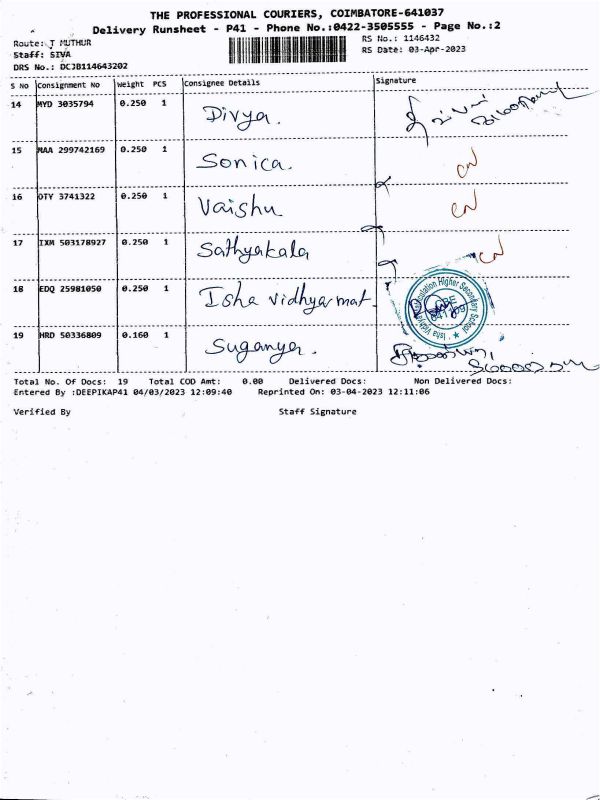 THE PROFESSIONAL COURIERS, COIMBATORE-641037
Delivery Runsheet - P41 - Phone No.:0422-3505555 - Page No.:2
Route: T MUTHUR
RS No.: 1146432
Staff: SIVA
RS Date: 03-Apr-2023
DRS No.: DCJB114643202
S No Consignment No Weight PCS Consignee Details Signature
14 MYD 3035794 0.250 1 Divya.
15 MAA 299742169 0.250 1 Sonica.
16 OTY 3741322 0.250 1 Vaishu
17 IXM 503178927 0.250 1 Sathyakala
18 EDQ 25981050 0.250 1 Isha vidhya mat.
19 HRD 50336809 0.160 1 Suganya.
Total No. Of Docs: 19 Total COD Amt: 0.00 Delivered Docs: Non Delivered Docs:
Entered By :DEEPIKAP41 04/03/2023 12:09:40 Reprinted On: 03-04-2023 12:11:06
Verified By Staff Signature